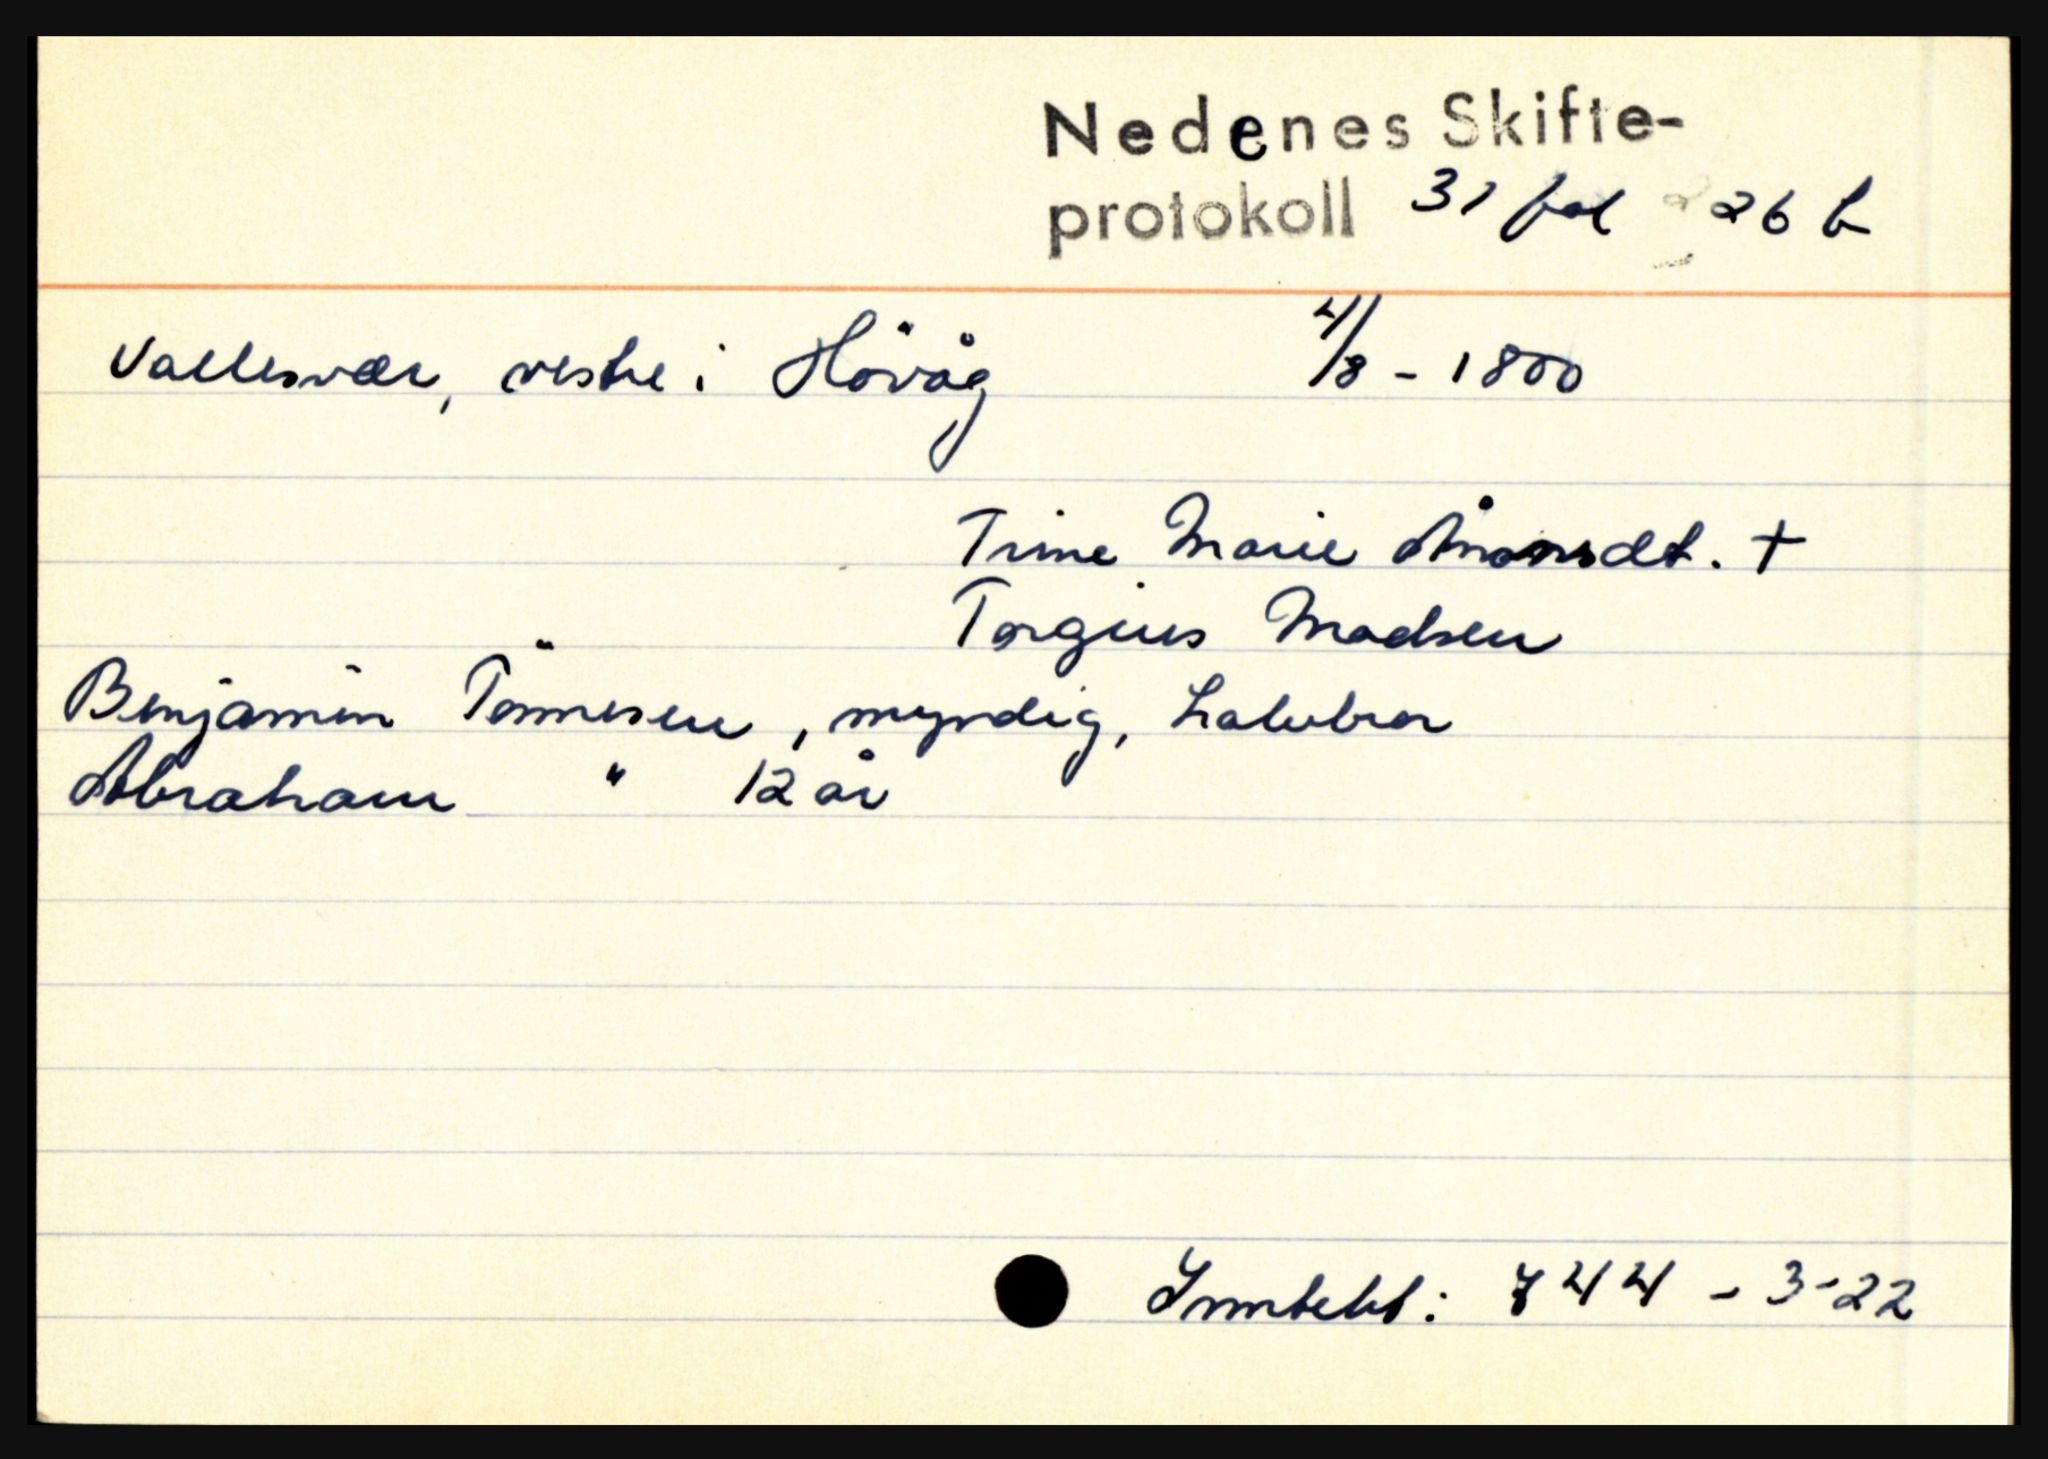 Nedenes Skifte-
protokoll 31 fol 226 b
Vallesvær, vestre i Hövåg 4/8 - 1800
Trine Marie Ånonsdt. +
Torgius Madsen
Benjamin Tönnesen, myndig, halvbror
Abraham " 12 år
Inntekt: 744 - 3-22